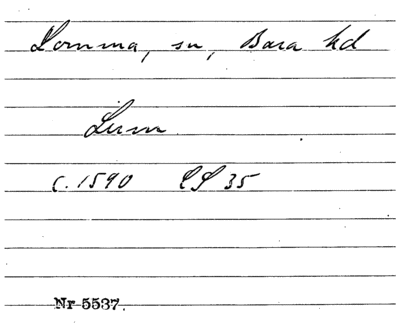 Lomma, sn, Bara hd
Lum
c. 1590 LS 35
Nr 5537.